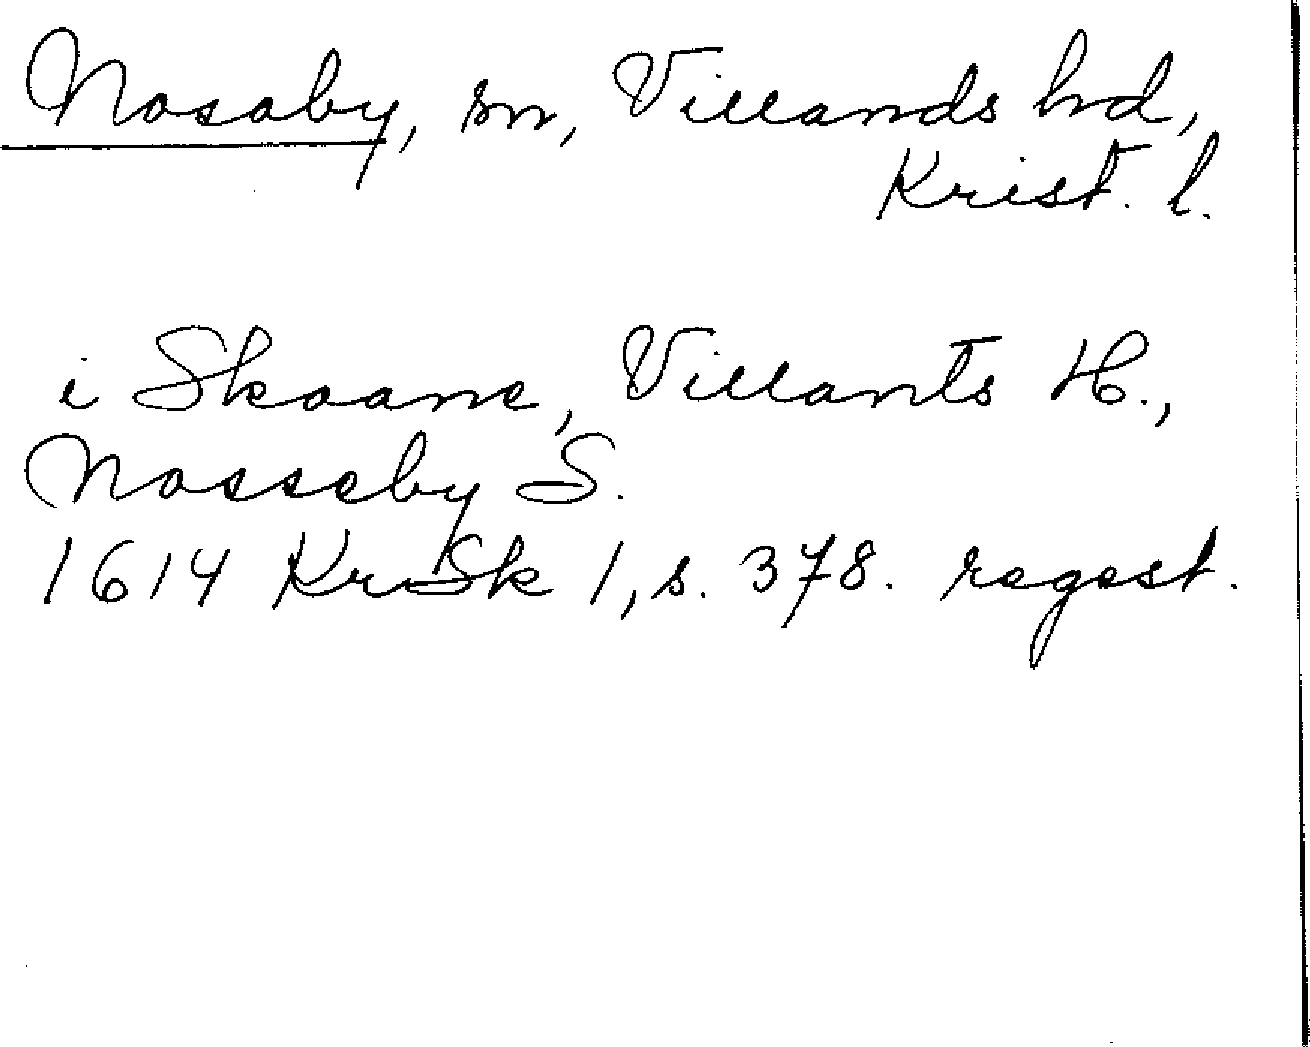 Nosaby, sn, Villands hd,
Krist. l.
i Skaane, Villants H.,
Nosseby S.
1614 KrSk 1, s. 378. regest.